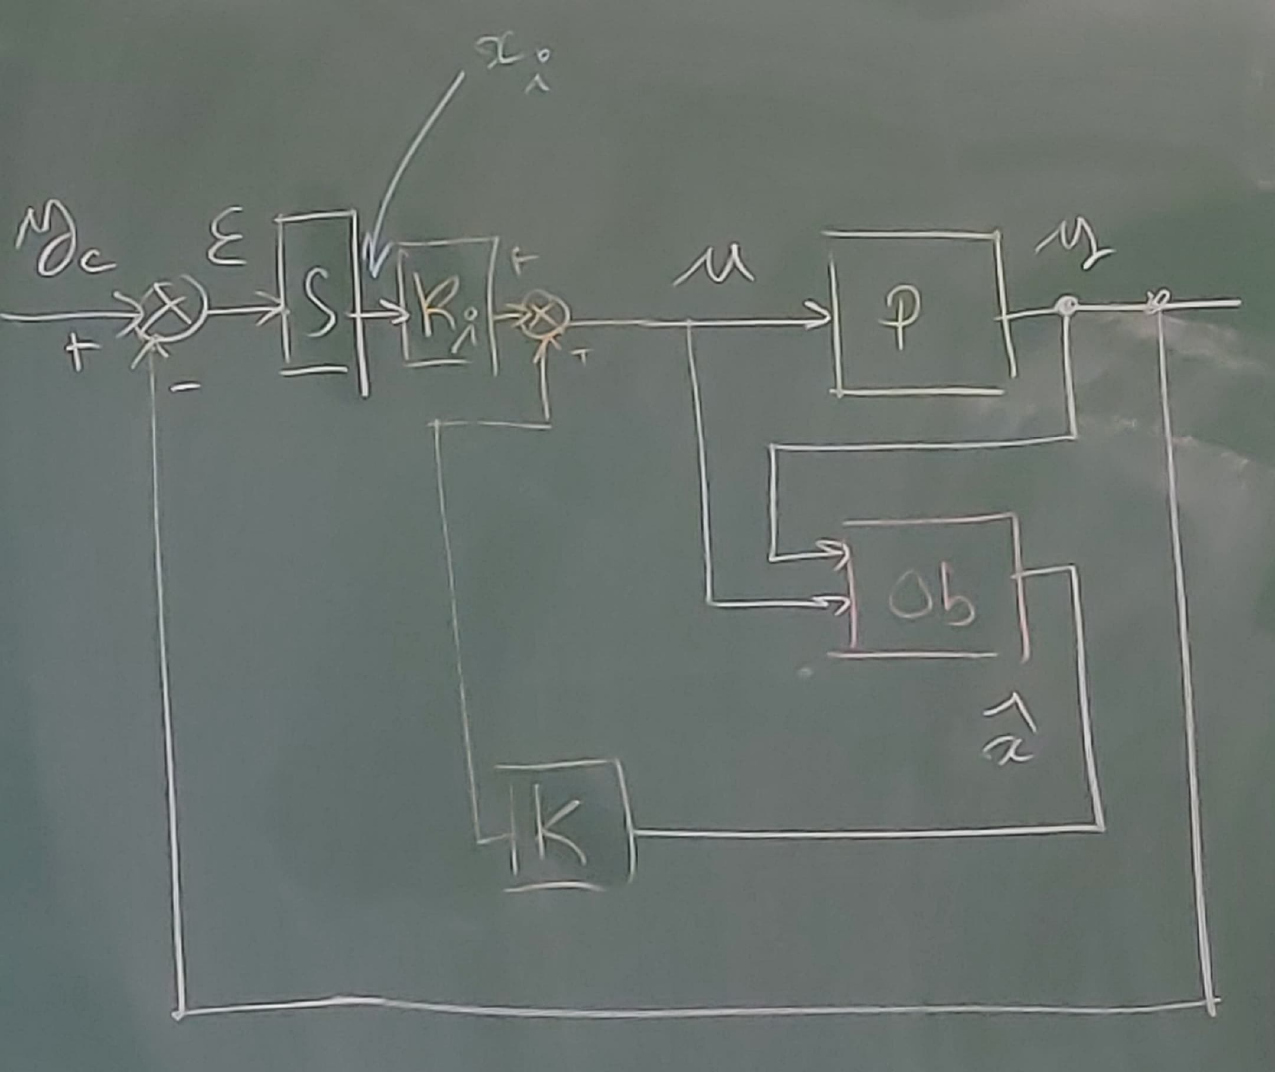 xᵢ
y_c ε S Kᵢ + u P y
+ - +
Ob
x̂
K